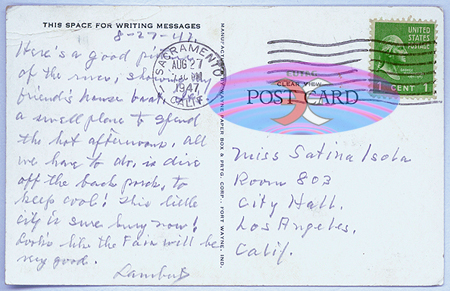 THIS SPACE FOR WRITING MESSAGES
8-27-47.
Here's a good
of the river, showing
friend's house boat,
a swell place to spend
the hot afternoons, all
we have to do, is dive
off the back porch, to
keep cool! This little
city is sure busy now!
Looks like the Fair will be
very good.
SACRAMENTO
AUG 27
1947
CALIF.
UNITED STATES
POSTAGE
1 CENT 1
CLEAR VIEW
POST CARD
PAPER BOX & PRTG. CORP., FORT WAYNE, IND.
Miss Satina Isola
Room 803
City Hall.
Los Angeles.
Calif.